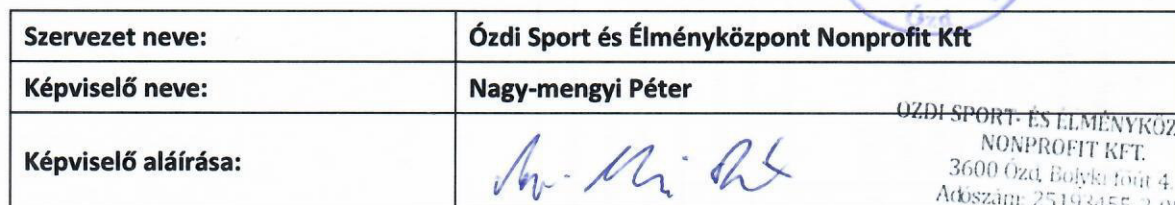 Ózd
Szervezet neve: Ózdi Sport és Élményközpont Nonprofit Kft
Képviselő neve: Nagy-mengyi Péter
Képviselő aláírása:
OZDI SPORT- ÉS ÉLMÉNYKÖZ
NONPROFIT KFT.
3600 Ózd, Bolyki főút 4.
Adószám: 25193455-2-0